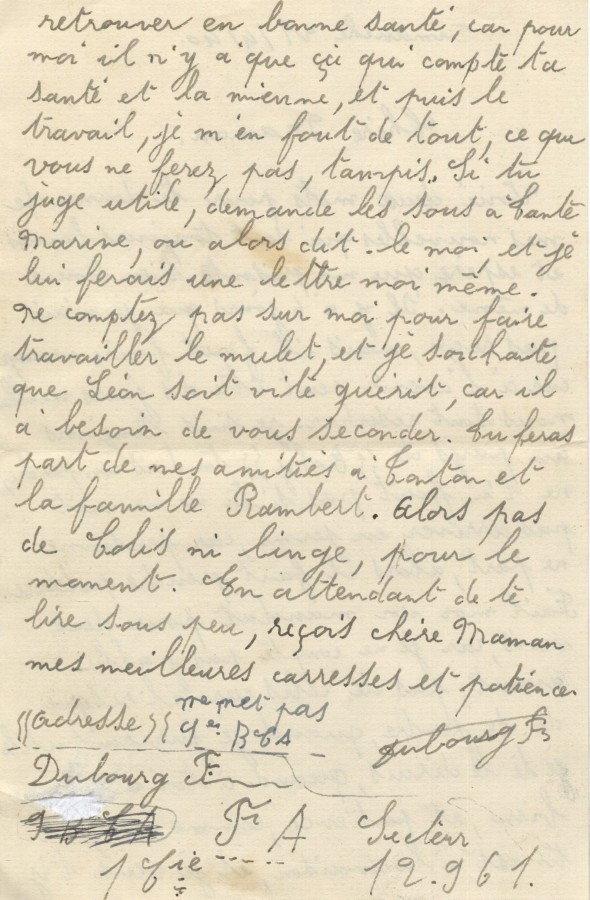 retrouver en bonne santé, car pour
moi il n'y a que çci qui compte ta
santé et la mienne, et puis le
travail, je m'en fout de tout, ce que
vous ne ferez pas, tampis. Si tu
juge utile, demande les sous a Tante
Marine, ou alors dit-le moi, et je
lui ferais une lettre moi même.
Ne comptez pas sur moi pour faire
travailler le mulet, et je souhaite
que Léon soit vite guérit, car il
a besoin de vous seconder. Tu feras
part de mes amitiés a Tonton et
la famille Rambert. Alors pas
de Colis ni linge, pour le
moment. En attendant de te
lire sous peu, reçois chère Maman
mes meilleures carresses et patience
((adresse)) ne met pas
9e BCA
Dubourg Fs
Dubourg F.
9 B C A Fr A Secteur
1 Cie 12.961.